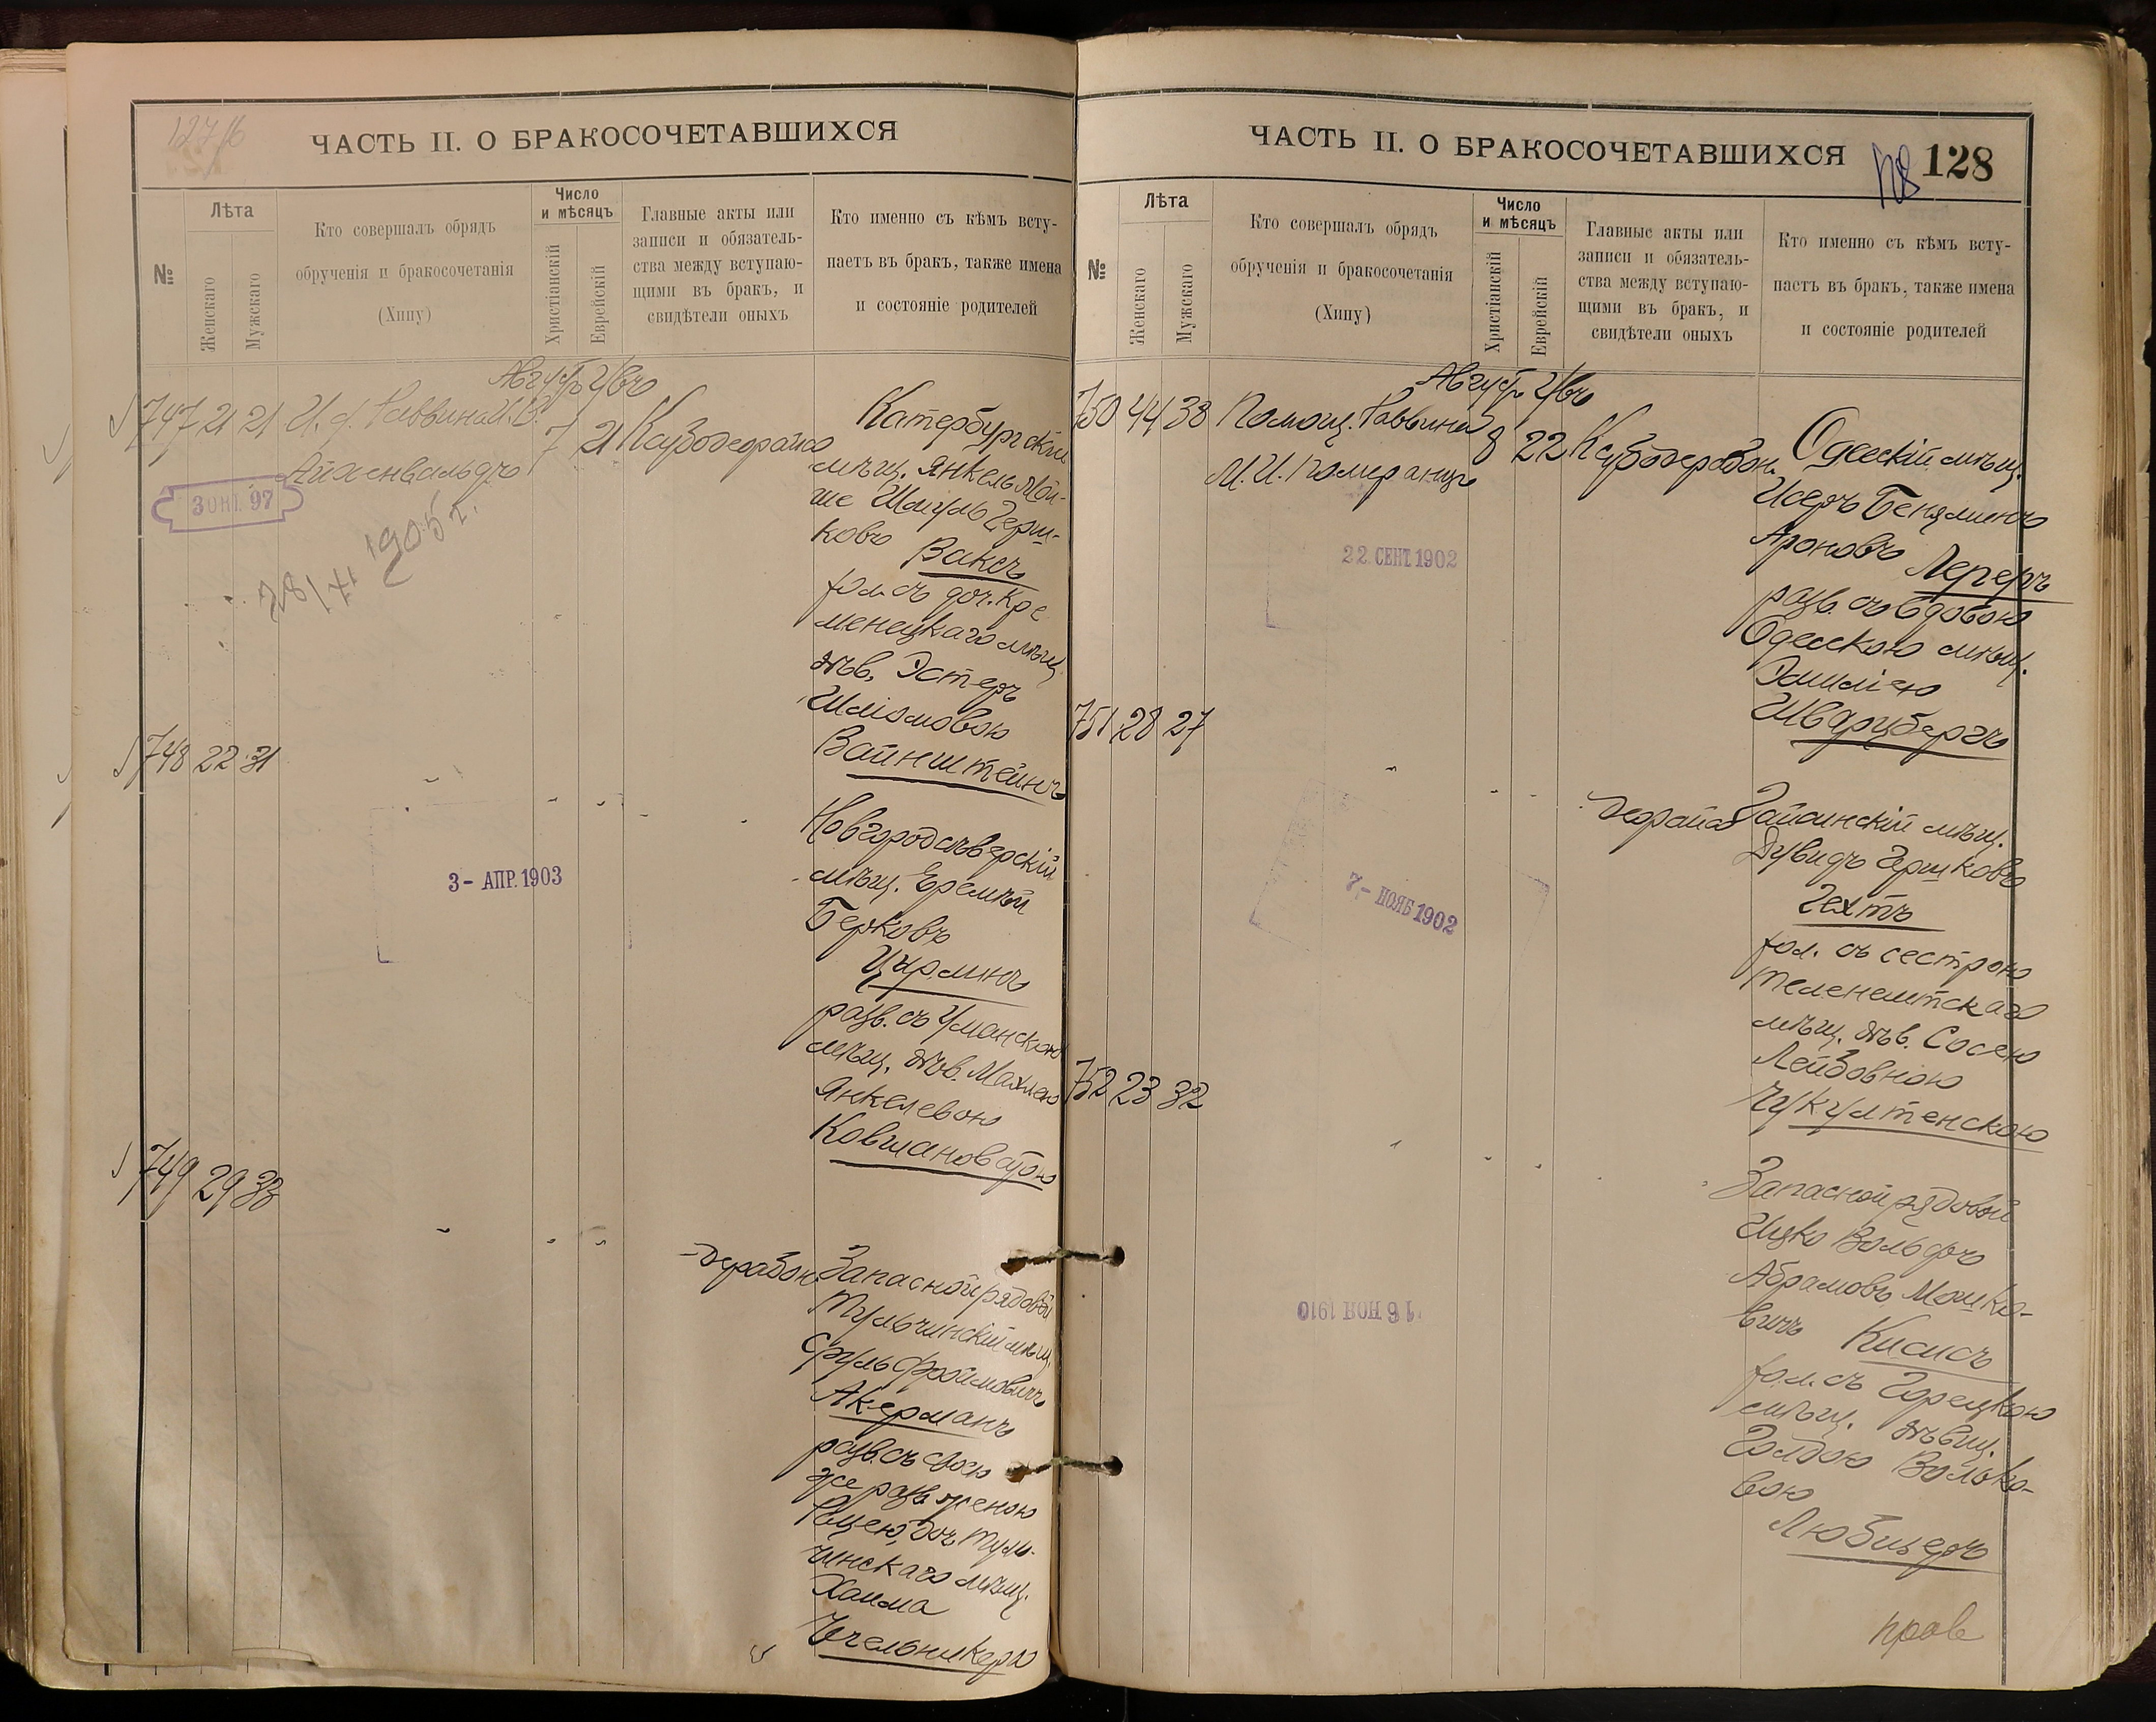 ЧАСТЬ II. О БРАКОСОЧЕТАВШИХСЯ
№
Лѣта
Женскаго
Мужскаго
Кто совершалъ обрядъ
обрученія и бракосочетанія
(Хипу)
Число
и мѣсяцъ
Христіанскій
Еврейскій
Главные акты или
записи и обязатель-
ства между вступаю-
щими въ бракъ, и
свидѣтели оныхъ
Кто именно съ кѣмъ всту-
паетъ въ бракъ, также имена
и состояніе родителей
Августъ
747 21 21 И. д. Раввина
Айхенвальдъ
7 21
3 ОКТ. 97
1905 г.
Катербургскій
мѣщ. Янкель Мой-
ше Шмуль Герш-
ковъВаксъ
хол. съ доч. Кре
менецкаго мѣщ.
дѣв. Эстеръ
Шліомовою
Вайнштейнъ
748 22 31
3 - АПР. 1903
Новгородсѣверскій
мѣщ. Еремѣй
Берковъ
Цырлинъ
разв. съ Уманскою
мѣщ. дѣв. Махлею
Янкелевою
Ковшановатою
749 29 33
Запасной рядовой
Тульчинскій мѣщ.
Сруль Фроимовичъ
Акерманъ
разв. съ своею
же разв. женою
доч. Туль-
чинскаго мѣщ.
Хаима
Чечельникеръ
ЧАСТЬ II. О БРАКОСОЧЕТАВШИХСЯ
128
№
Лѣта
Женскаго
Мужскаго
Кто совершалъ обрядъ
обрученія и бракосочетанія
(Хипу)
Число
и мѣсяцъ
Христіанскій
Еврейскій
Главные акты или
записи и обязатель-
ства между вступаю-
щими въ бракъ, и
свидѣтели оныхъ
Кто именно съ кѣмъ всту-
паетъ въ бракъ, также имена
и состояніе родителей
Августъ
750 44 38 Помощ. Раввина
М. И. Померанцъ
8 22
22. СЕНТ. 1902
Одесскій мѣщ.
Исеръ Бенямінъ
Ароновъ Лереръ
разв. съ вдовою
Одесскою мѣщ.
Эмиліею
Шварцбергъ
751 28 27
7. - НОЯБ 1902
Гайсинскій мѣщ.
Дувидъ Гершковъ
Гехтъ
хол. съ сестрою
Теленештскаго
мѣщ. дѣв. Сосею
Лейбовною
Чукултенскою
752 23 32
16 НОЯ 1910
Запасной рядовой
Ицко Вольфъ
Абрамовъ Мошко-
вичъ Кисисъ
хол. съ Горецкою
мѣщ. дѣвиц.
Голдою Волько-
вою
Любищеръ